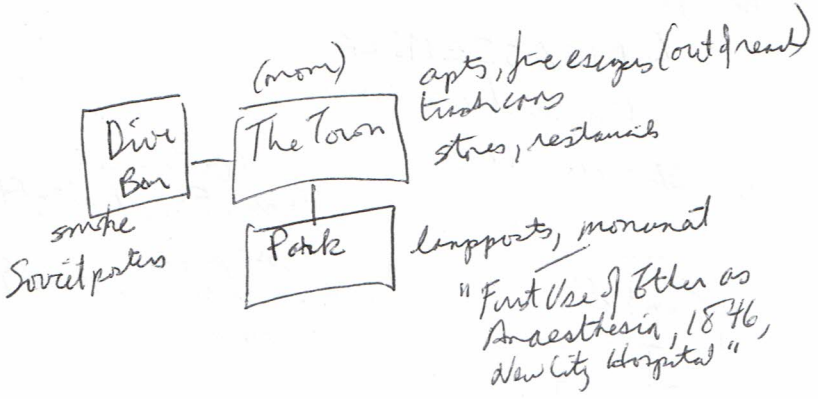 (mom)
apts, fire escapes (out of reach)
trashcans
stores, restaurants
The Town
Dive
Bar
smoke
Soviet posters
Park
lampposts, monument
"First Use of Ether as
Anaesthesia, 1846,
New City Hospital"